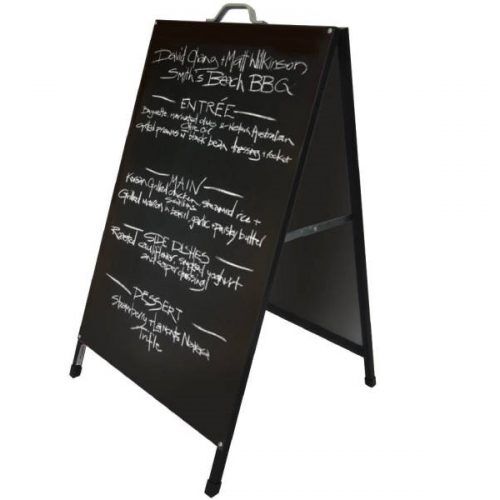 David Chang + Matt Wilkinson
Smith's Beach BBQ
ENTRÉE
Baguette marinated olives & Western Australian
Olive Oil
Grilled prawns w black bean dressing + rocket
MAIN
Korean Grilled chicken, steamed rice +
Grilled w basil, garlic + parsley butter
SIDE DISHES
Roasted cauliflower yoghurt
and caper dressing
DESSERT
Strawberry +
Trifle